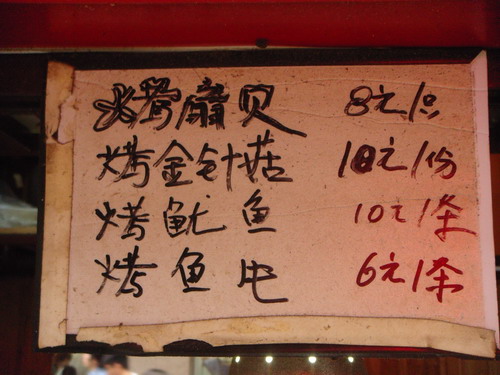 烤扇贝 8元/只
烤金针菇 10元/份
烤鱿鱼 10元/条
烤鱼屯 6元/条